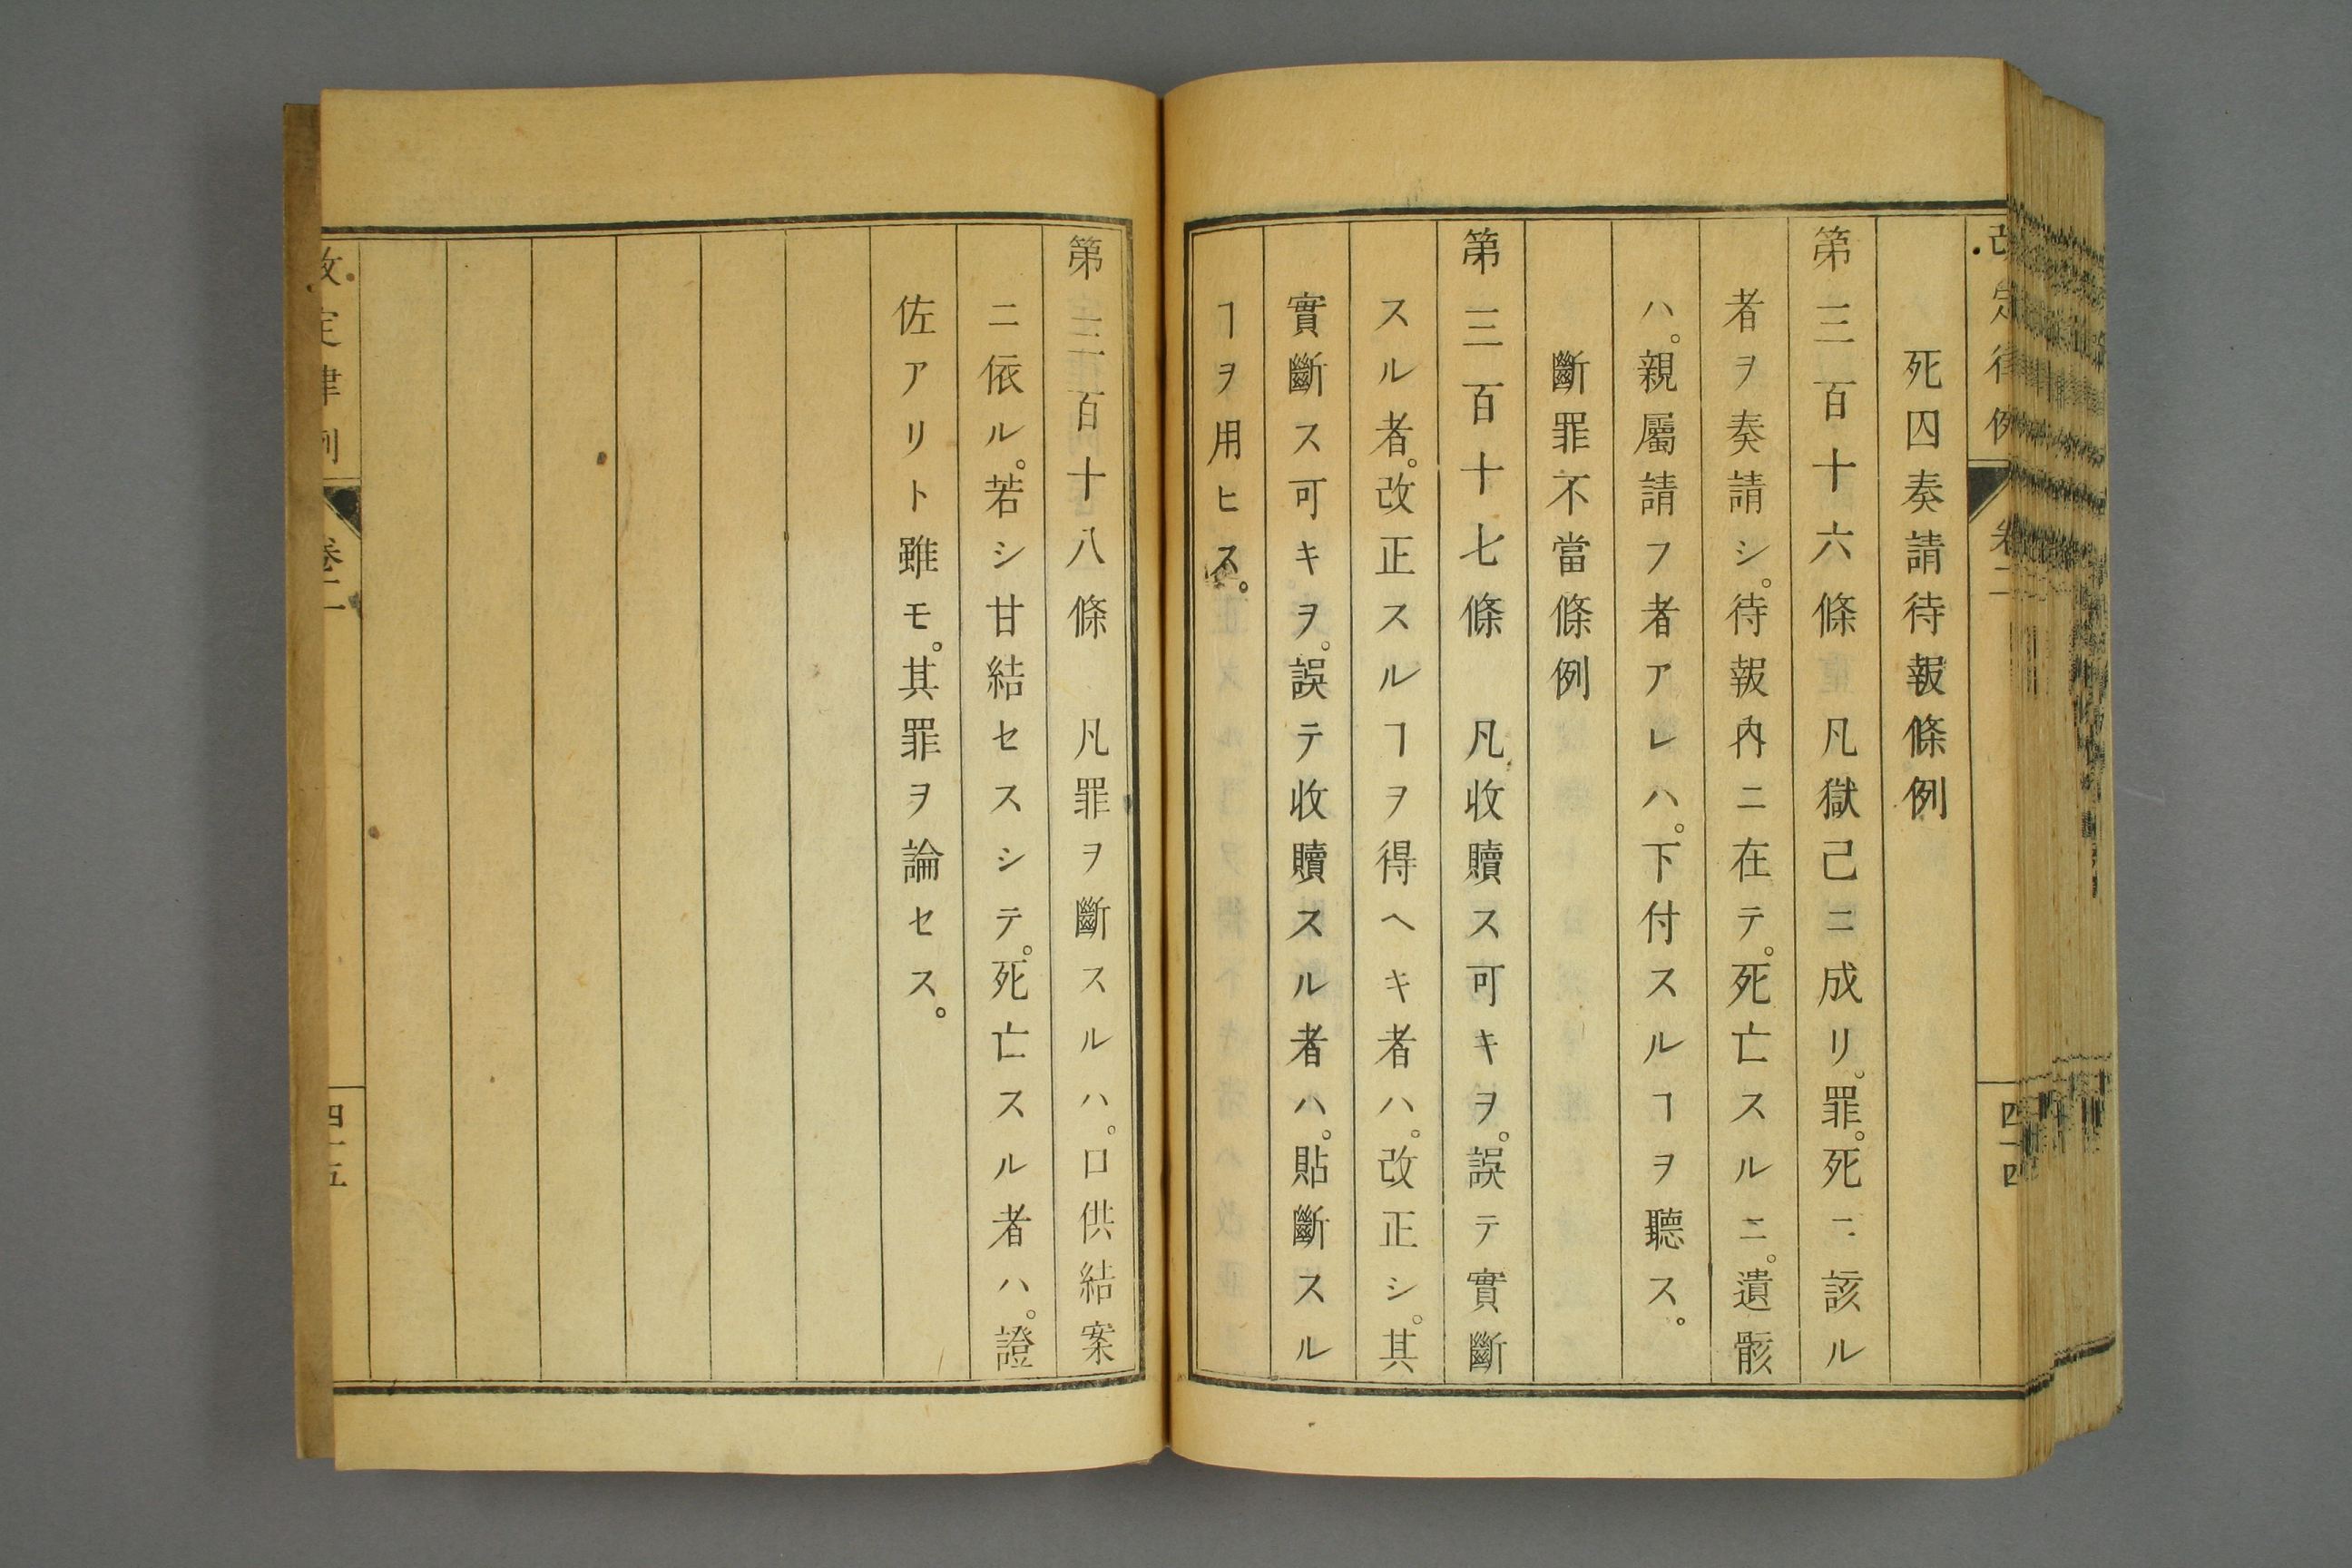 改定律例
卷二
四十四
死囚奏請待報條例
第三百十六條 凡獄己ニ成リ。罪。死ニ該ル
者ヲ奏請シ。待報內ニ在テ。死亡スルニ。遺骸
ハ。親屬請フ者アレハ。下付スルヿヲ聽ス。
斷罪不當條例
第三百十七條 凡收贖ス可キヲ。誤テ實斷
スル者。改正スルヿヲ得ヘキ者ハ。改正シ。其
實斷ス可キヲ。誤テ收贖スル者ハ。貼斷スル
ヿヲ用ヒス。
第三百十八條 凡罪ヲ斷スルハ。口供結案
ニ依ル。若シ甘結セスシテ。死亡スル者ハ。證
佐アリト雖モ。其罪ヲ論セス。
改定律例
卷二
四十五